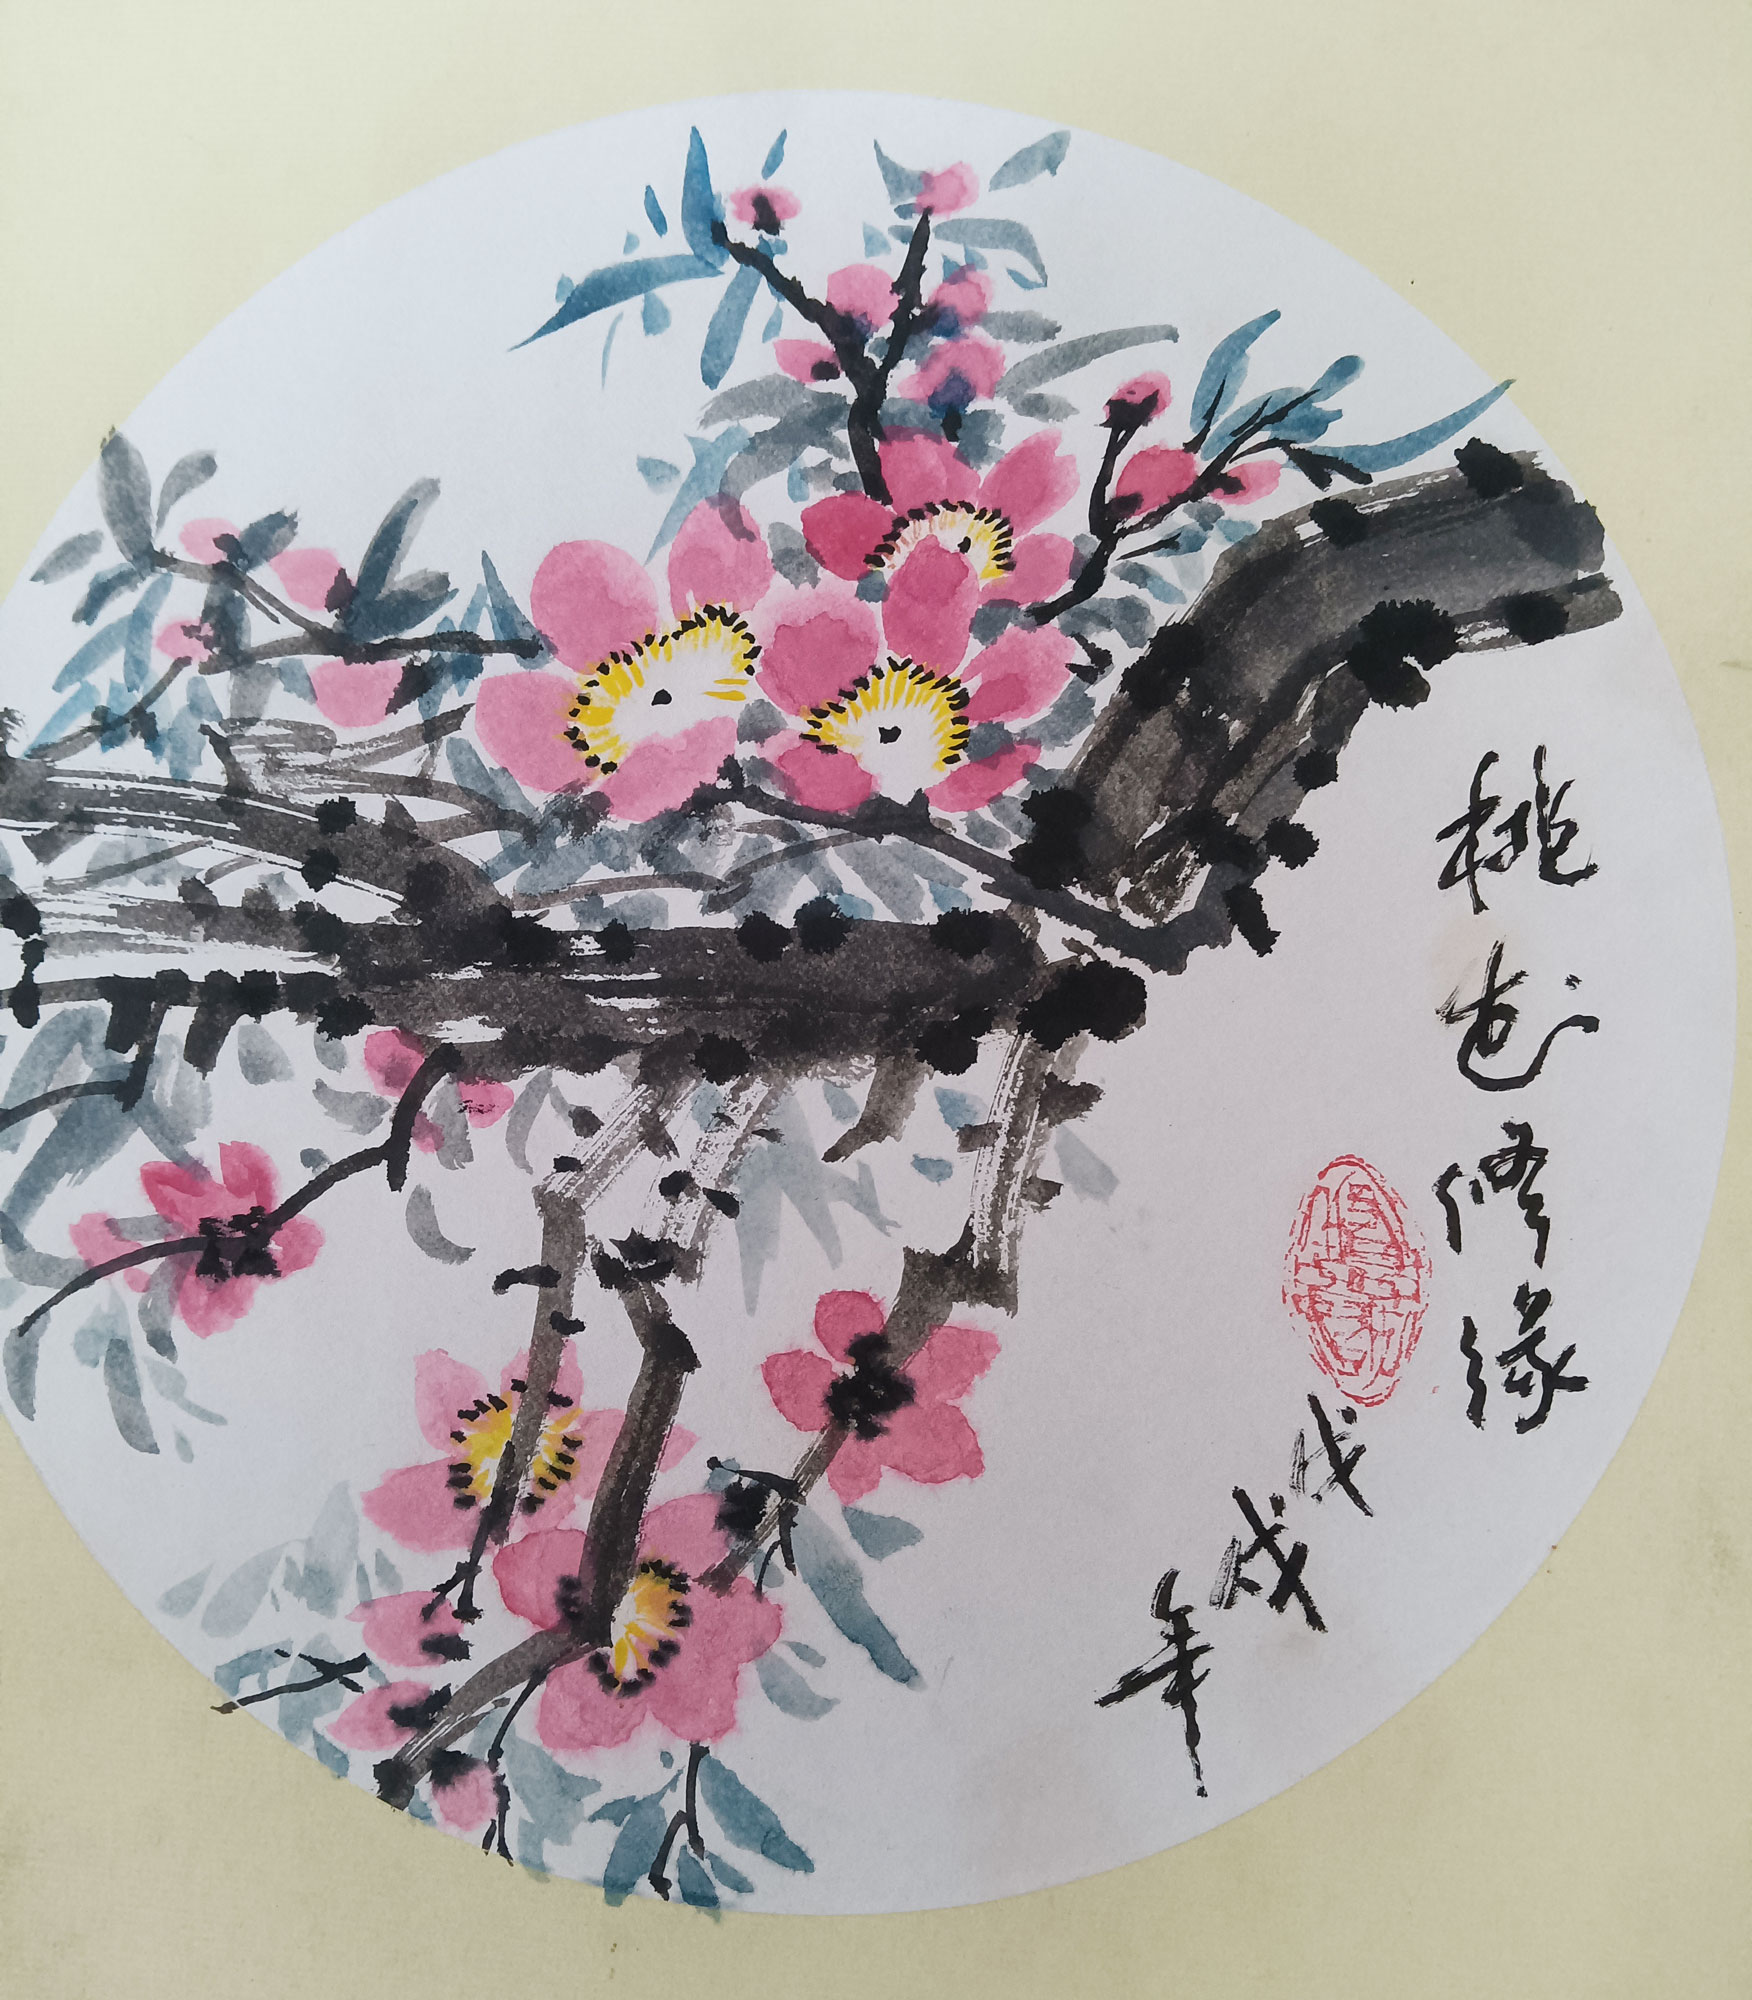 桃花修缘
戊戌年